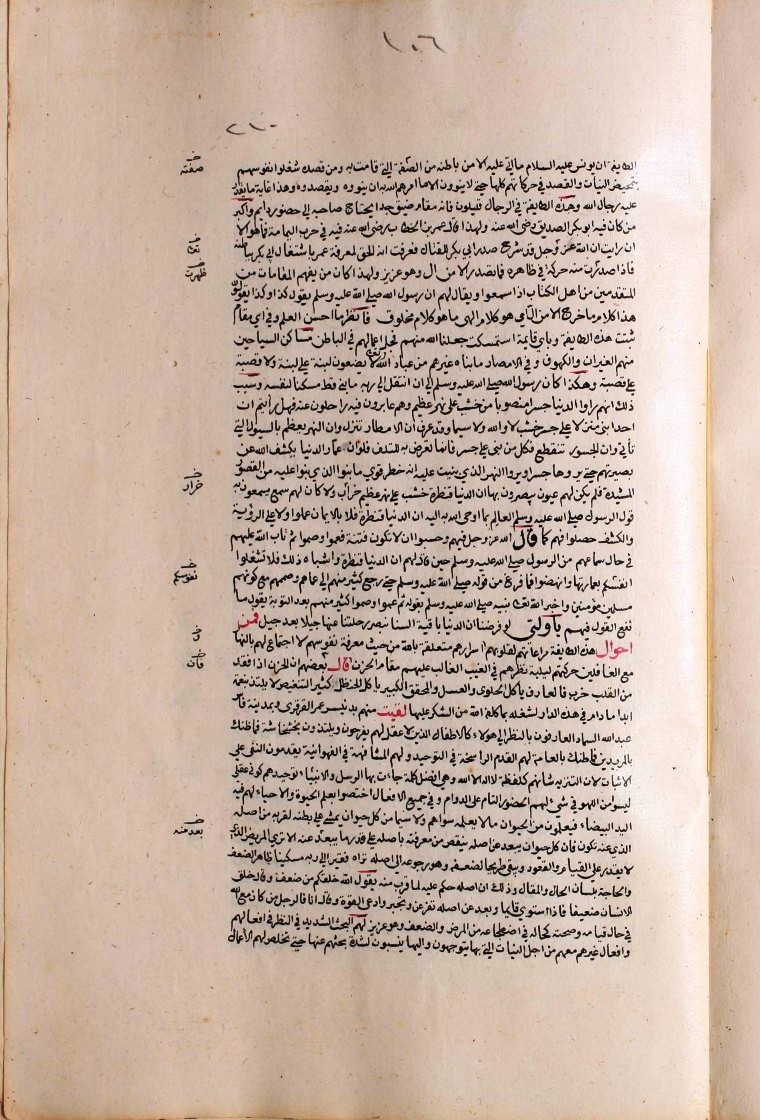 ١٠٦
٢١٠
الطايفة ان يونس عليه السلام ما اتى عليه الا من باطنه من الصفة التي قامت به ومن قصده شغلوا نفوسهم
صفته
بتمحيص النيات والقصد في حركاتهم كلها حتى لا ينوون الا ما امرهم الله به ان ينووه ويقصدوه وهذا غاية ما يقدر
عليه رجال الله وهذه الطايفة في الرجال قليلون فانه مقام ضيق جدا يحتاج صاحبه الى حضور دايم واكبر
من كان فيه ابو بكر الصديق رضي الله عنه ولهذا قال عمر بن الخطاب رضي الله عنه فيه في حرب اليمامة فما هو الا
ان رايت ان الله عز وجل قد شرح صدر ابي بكر للقتال فعرفت انه الحق لمعرفة عمر باشتغال ابي بكر بباطنه
فاذا صدرت منه حركة في ظاهره فما تصدر الا من ال وهو عزيز ولهذا كان من يفهم المقامات من
ظهرت
المتقدمين من اهل الكتاب اذا سمعوا ويقال لهم ان رسول الله صلى الله عليه وسلم يقول كذا وكذا يقولون
هذا كلام ما خرج الا من ال اي هو كلام الهي ما هو كلام مخلوق فانظر ما احسن العلم وفي اي مقام
ثبتت هذه الطايفة وباي قايمة استمسكت جعلنا الله منهم فجل اعمالهم في الباطن مساكن السياحين
منهم الغيران والكهوف وفي الامصار ما بناه غيرهم من عباد الله لا يضعون لبنة على لبنة ولا قصبة
على قصبة وهكذا كان رسول الله صلى الله عليه وسلم الى ان انتقل الى ربه ما بنى قط مسكنا لنفسه وسبب
ذلك انهم راوا الدنيا جسرا منصوبا من خشب على نهر عظيم وهم عابرون فيه راحلون عنه فهل رايتم ان
احدا بنى منزلا على جسر خشب لا والله ولا سيما وقد عرف ان الامطار تنزل وان النهر يعظم بالسيول التي
تاتي وان الجسور تنقطع فكل من بنى على جسر فانما تعرض به للتلف فلو ان عمار الدنيا يكشف الله عن
بصيرتهم حتى يروها جسرا ويروا النهر الذي بنيت عليه انه خطر قوي ما بنوا الذي بنوا عليه من القصور
المشيدة فلم يكن لهم عيون يبصرون بها ان الدنيا قنطرة خشب على نهر عظيم خراب ولا كان لهم سمع يسمعون به
خرار
قول الرسول صلى الله عليه وسلم العالم بما اوحى الله به اليه ان الدنيا قنطرة فلا بالايمان عملوا ولا على الرؤية
والكشف حصلوا فهم كما قال الله عز وجل فيهم وحسبوا ان لا تكون فتنة فعموا وصموا ثم تاب الله عليهم
في حال سماعهم من الرسول صلى الله عليه وسلم حين قال لهم ان الدنيا قنطرة واشباه ذلك فلا تشغلوا
انفسكم بعمارتها وانهضوا فما فرغ من قوله صلى الله عليه وسلم حتى رجع كثير منهم الى عماهم وصممهم مع كونهم
نفوسكم
مسلمين مؤمنين واخبر الله تعالى نبيه صلى الله عليه وسلم بقوله ثم عموا وصموا كثير منهم بعد التوبة يقول ما
نفع القول فيهم يا ولي لو فرضنا ان الدنيا باقية السنا نبصر رحلتنا عنها جيلا بعد جيل فمن
احوال هذه الطايفة مراعاتهم لقلوبهم اسرارهم متعلقة بالله من حيث معرفة نفوسهم لا اجتماع لهم بالنهار
مع الغافلين حركتهم ليلية نظرهم في الغيب الغالب عليهم مقام الحزن قال بعضهم ان الحزن اذا فقد
فان
من القلب خرب فالعارف ياكل الحلوى والعسل والمحقق الكبير ياكل الحنظل كثير التنغيص لا يلتذ بنعمة
ابدا ما دام في هذه الدار لشغله بما كلفه الله من الشكر عليها لقيت منهم بدنيسر عمر الفرقري وبمدينة فاس
عبد الله السماد العارفون بالنظر الى هولاء كالاطفال الذين لا عقل لهم يفرحون ويلتذون بخشخاشة فما ظنك
بالمريدين فما ظنك بالعامة لهم القدم الراسخة في التوحيد ولهم المشافهة في الفهوانية يقدمون النفي على
الاثبات لان التنزيه شانهم كلفظة لا اله الا الله وهي افضل كلمة جاءت بها الرسل والانبياء توحيدهم كوني عقلي
ليسوا من اللهو في شيء لهم الحضور التام على الدوام وفي جميع الافعال اختصوا بعلم الحيوة والاحياء لهم فيه
اليد البيضاء فيعلمون من الحيوان ما لا يعلمه سواهم ولا سيما من كل حيوان يمشي على بطنه لقربه من اصله
الذي عنه تكون فان كل حيوان يبعد عن اصله ينقص من معرفته باصله على قدر ما يبعد عنه الا ترى المريض الذي
بعد منه
لا يقدر على القيام والقعود ويبقى طريحا لضعفه وهو رجوعه الى اصله تراه فقيرا الى ربه مسكينا ظاهر الضعف
والحاجة بلسان الحال والمقال وذلك ان اصله حكم عليه لما قرب منه يقول الله خلقكم من ضعف وقال خلق
الانسان ضعيفا فاذا استوى قايما وبعد عن اصله تفرعن وتجبر وادعى القوة وقال انا فالرجل من كان مع الله
في حال قيامه وصحته كحاله في اضطجاعه من المرض والضعف وهو عزيز لهم البحث الشديد في النظر في افعالهم
وافعال غيرهم معهم من اجل النيات التي بها يتوجهون واليها ينسبون لشدة بحثهم عنها حتى تخلص لهم الاعمال